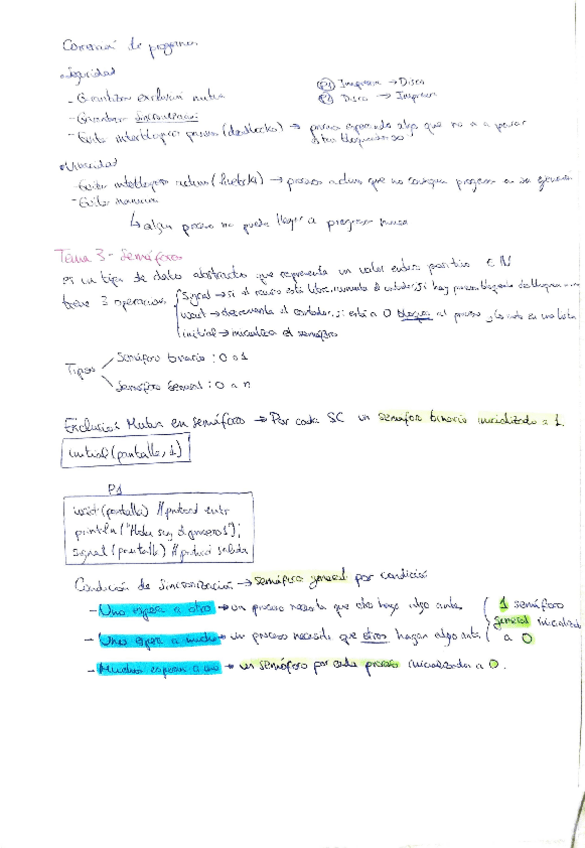 Corrección de programas
• Seguridad
- Garantizar exclusión mutua
P1 Impresora → Disco
P2 Disco → Impresora
- Garantizar sincronización
- Evitar interbloqueo pasivo (deadlocks) → proceso esperando algo que no va a pasar
• Vivacidad
- Evitar interbloqueo activo (livelock) → procesos activos que no consiguen progresar
- Evitar inanición
↳ algún proceso no puede llegar a progresar nunca
Tema 3 - Semáforos
Es un tipo de dato abstracto que representa un valor entero positivo ∈ ℕ
tiene 3 operaciones
signal → si el recurso está libre, incrementa el contador, si hay procesos bloqueados
wait → decrementa el contador, si está a 0 bloquea al proceso y lo mete en una lista
initial → inicializa el semáforo
Tipos
Semáforo binario: 0 o 1
Semáforo General: 0 a n
Exclusión Mutua en semáforo → Por cada SC un semáforo binario inicializado a 1.
initial(pantalla, 1)
P1
wait(pantalla) //protocol entr
println("Hola soy proceso1");
signal(pantalla) //protocol salida
Condición de Sincronización → semáforo general por condición
- Uno espera a otro → un proceso necesita que otro haga algo antes
- Uno espera a muchos → un proceso necesita que otros hagan algo antes
1 semáforo
general inicializado
a 0
- Muchos esperan a uno → un semáforo por cada proceso inicializados a 0.